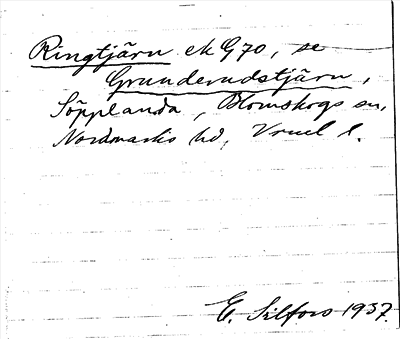 Ringtjärn ek G70, se
Grunderudstjärn,
Söpplanda, Blomskogs sn,
Nordmarks hd, Vrml l.
E. Silfors 1937.